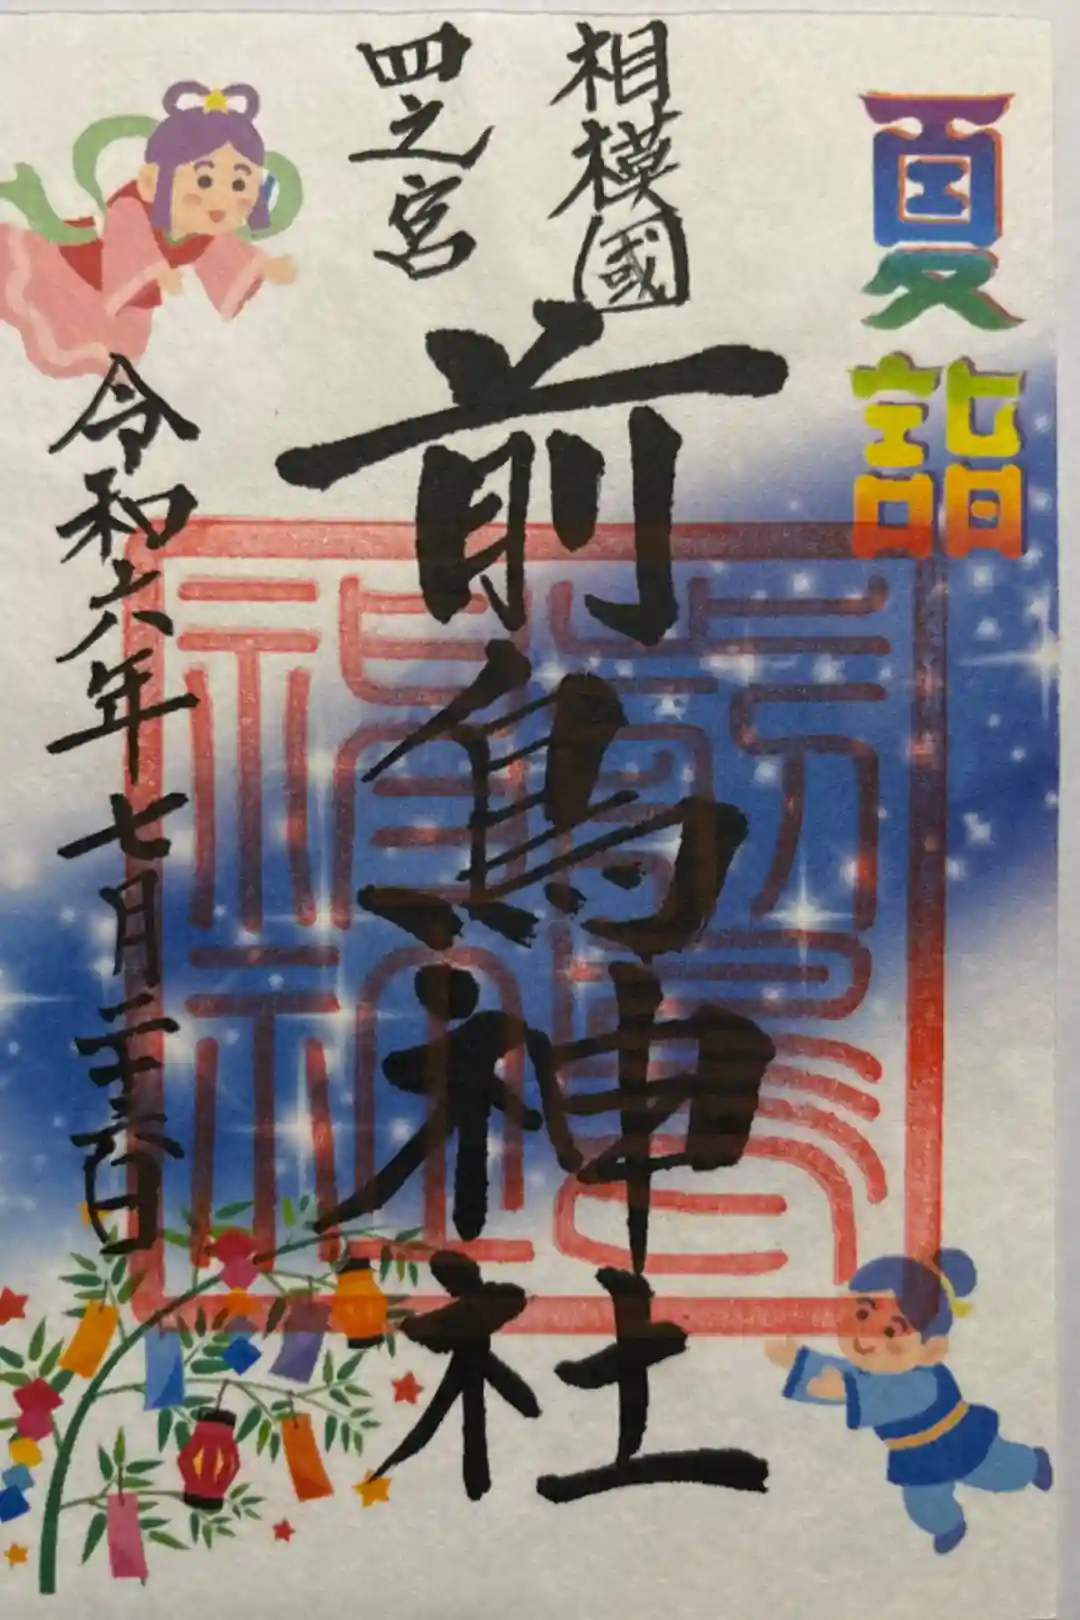 夏詣
相模國
四之宮
前鳥神社
令和六年七月二十六日